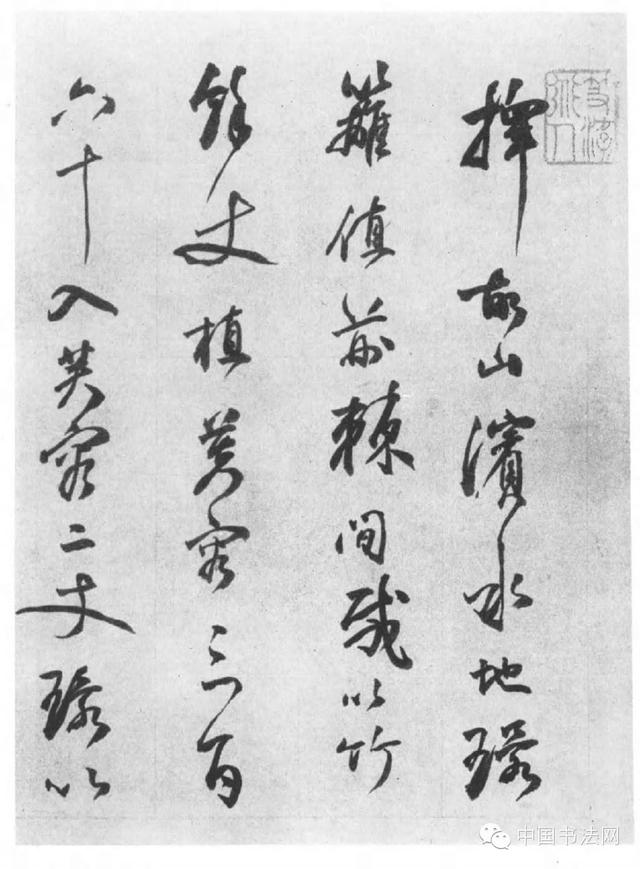 擇故山濱水地環
籬值荊棘間栽以竹
餘丈植芙容三百
六十入芙容二丈環以
中国书法网